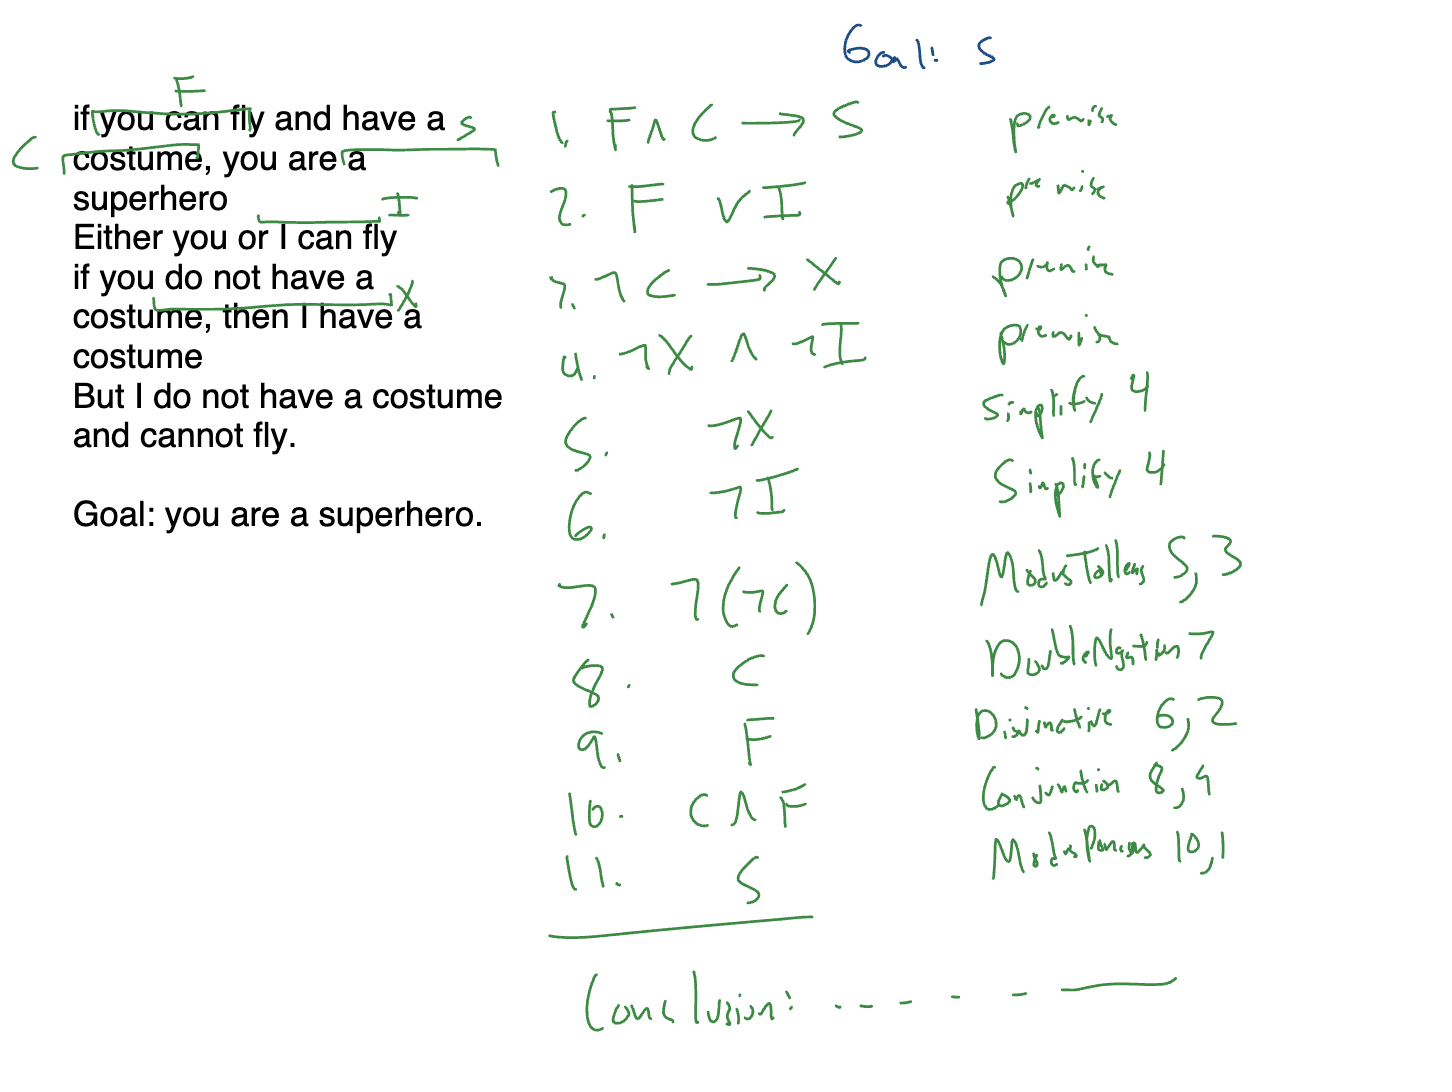 Goal: S
F
if you can fly and have a S
C costume, you are a
superhero
I
Either you or I can fly
if you do not have a
X
costume, then I have a
costume
But I do not have a costume
and cannot fly.
Goal: you are a superhero.
1. F ∧ C → S premise
2. F ∨ I premise
3. ¬C → X premise
4. ¬X ∧ ¬I premise
5. ¬X Simplify 4
6. ¬I Simplify 4
7. ¬(¬C) Modus Tollens 5, 3
8. C Double Ngation 7
9. F Disjunctive 6, 2
10. C ∧ F Conjunction 8, 9
11. S Modus Ponens 10, 1
Conclusion: .. - - - - ——